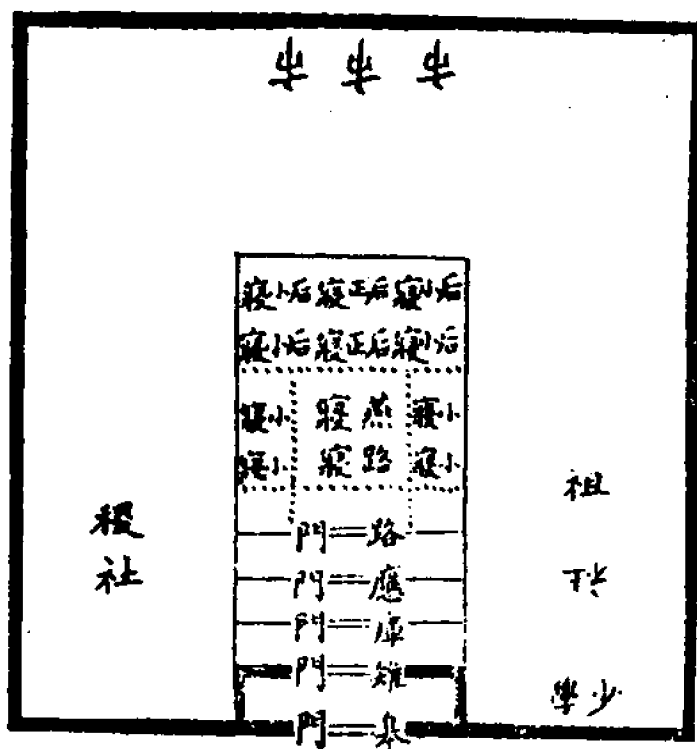 后小寢 后正寢 后小寢
后小寢 后正寢 后小寢
小寢 燕寢 小寢
小寢 路寢 小寢
祖
稷
社
路門
應門
庫門
雉門
皋門
少學